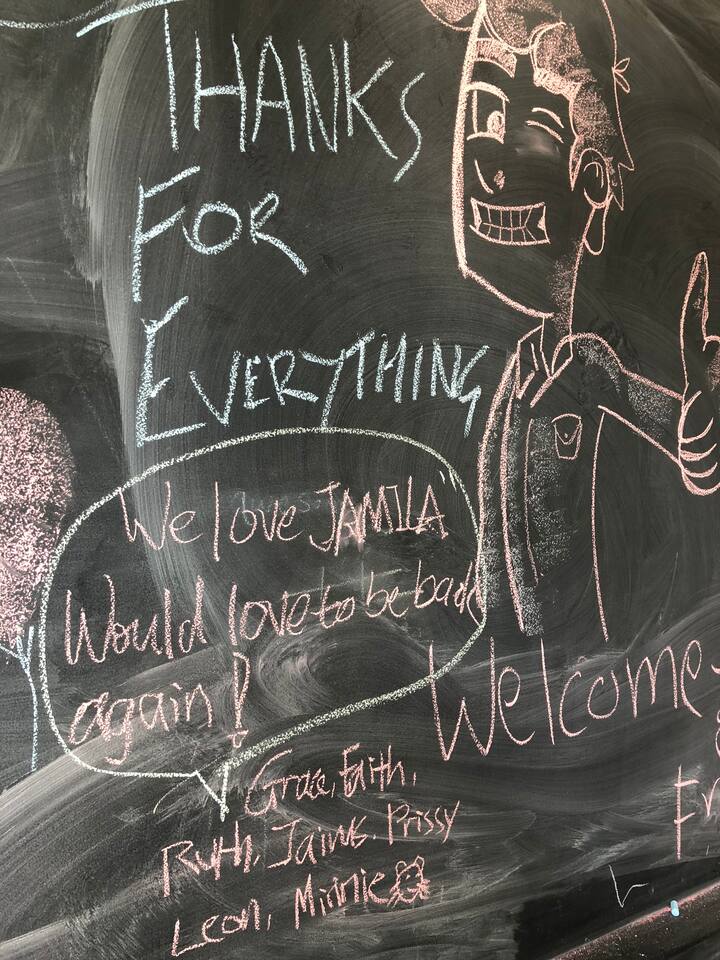 THANKS
FOR
EVERYTHING
We love JAMILA
Would love to be back
again!
Grace, Faith,
Ruth, Prissy
Leon, Minnie
Welcome